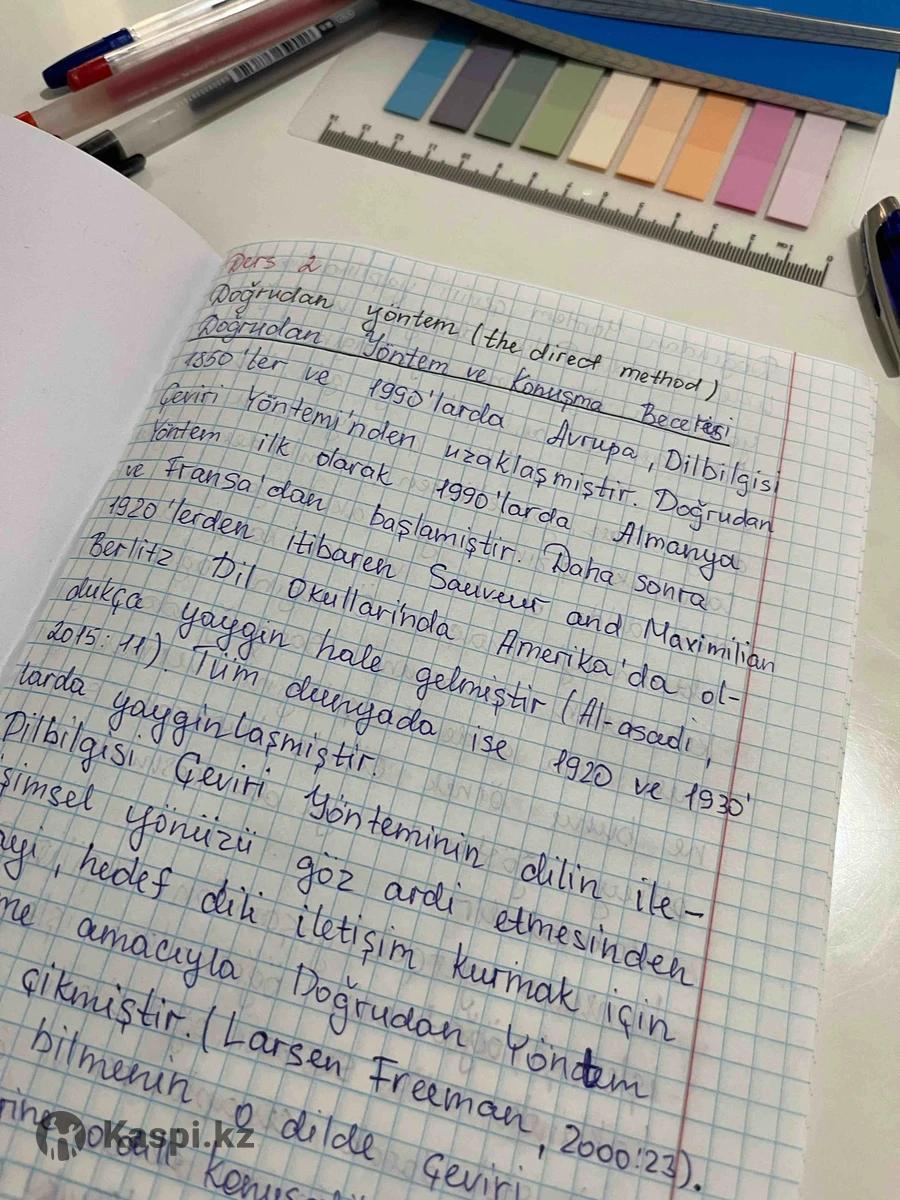 Ders 2
Doğrudan yöntem (the direct method)
Doğrudan Yöntem ve Konuşma Becerisi
1850'ler ve 1990'larda Avrupa, Dilbilgisi
Çeviri Yöntemi'nden uzaklaşmiştir. Doğrudan
Yöntem ilk olarak 1990'larda Almanya
ve Fransa'dan başlamiştir. Daha sonra
1920'lerden itibaren Sauveur and Maximilian
Berlitz Dil Okullari'nda Amerika'da ol-
dukça yaygin hale gelmiştir (Al-asadi,
2015:11). Tüm dunyada ise 1920 ve 1930'
larda yayginlaşmiştir.
Dilbilgisi Çeviri Yönteminin dilin ile-
şimsel yönüzü göz ardi etmesinden
ayi, hedef dili iletişim kurmak için
me amacıyla Doğrudan Yöntem
çikmiştir. (Larsen Freeman, 2000:23).
bilmenin o dilde çeviri
Kaspi.kz